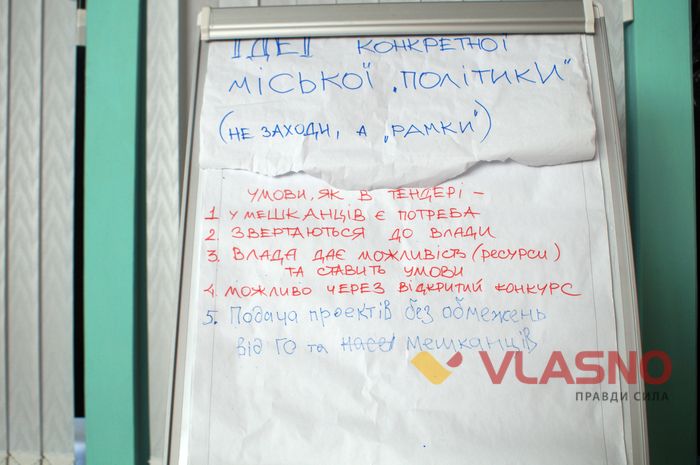 ІДЕЇ КОНКРЕТНОЇ
МІСЬКОЇ „ПОЛІТИКИ"
(НЕ ЗАХОДИ, А „РАМКИ")
УМОВИ, ЯК В ТЕНДЕРІ –
1. У МЕШКАНЦІВ Є ПОТРЕБА
2. ЗВЕРТАЮТЬСЯ ДО ВЛАДИ
3. ВЛАДА ДАЄ МОЖЛИВІСТЬ (РЕСУРСИ)
ТА СТАВИТЬ УМОВИ
4. МОЖЛИВО ЧЕРЕЗ ВІДКРИТИЙ КОНКУРС
5. Подача проектів без обмежень
від ГО та мешканців
VLASNO
ПРАВДИ СИЛА